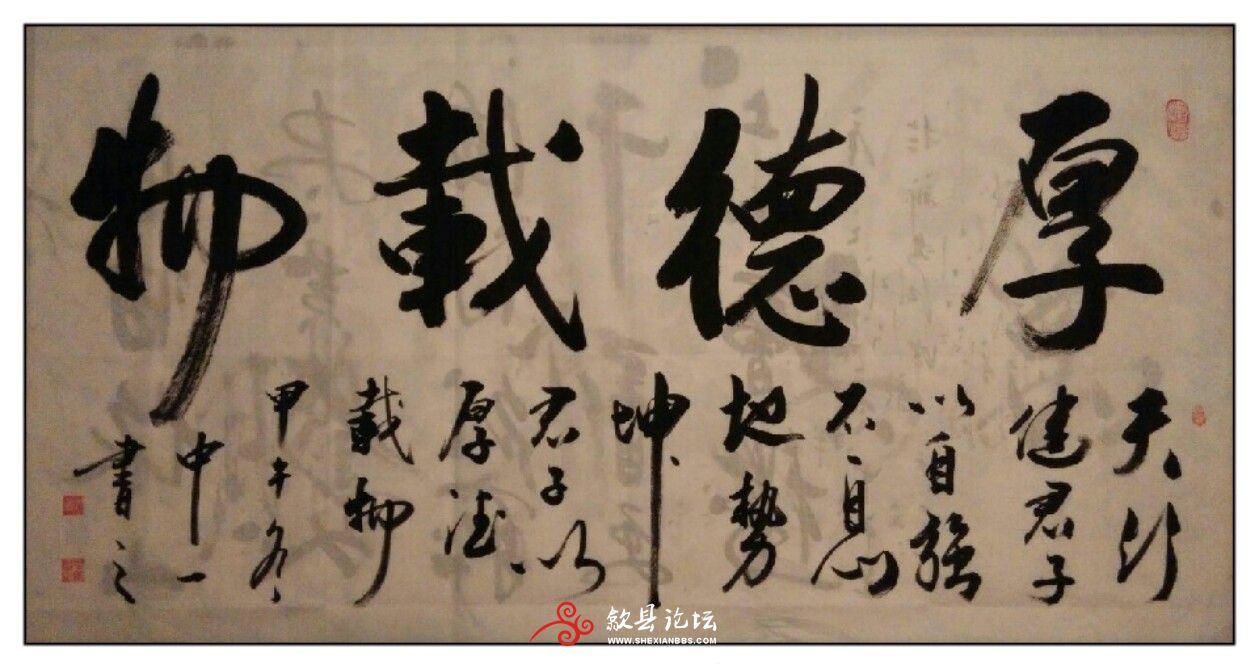 厚德載物
天行
健君子
以自強
不息
地勢
坤
君子以
厚德
載物
甲午冬
中一
書之
歙县论坛
WWW.SHEXIANBBS.COM